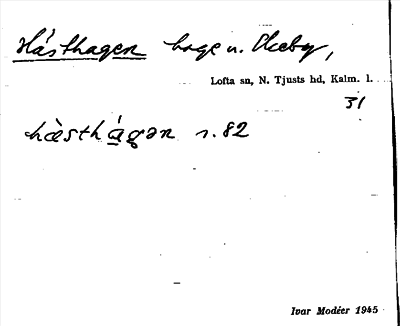 Hästhagen hage u. Ekeby,
Lofta sn, N. Tjusts hd, Kalm. l.
31
hàsthágən s. 82
Ivar Modéer 1945